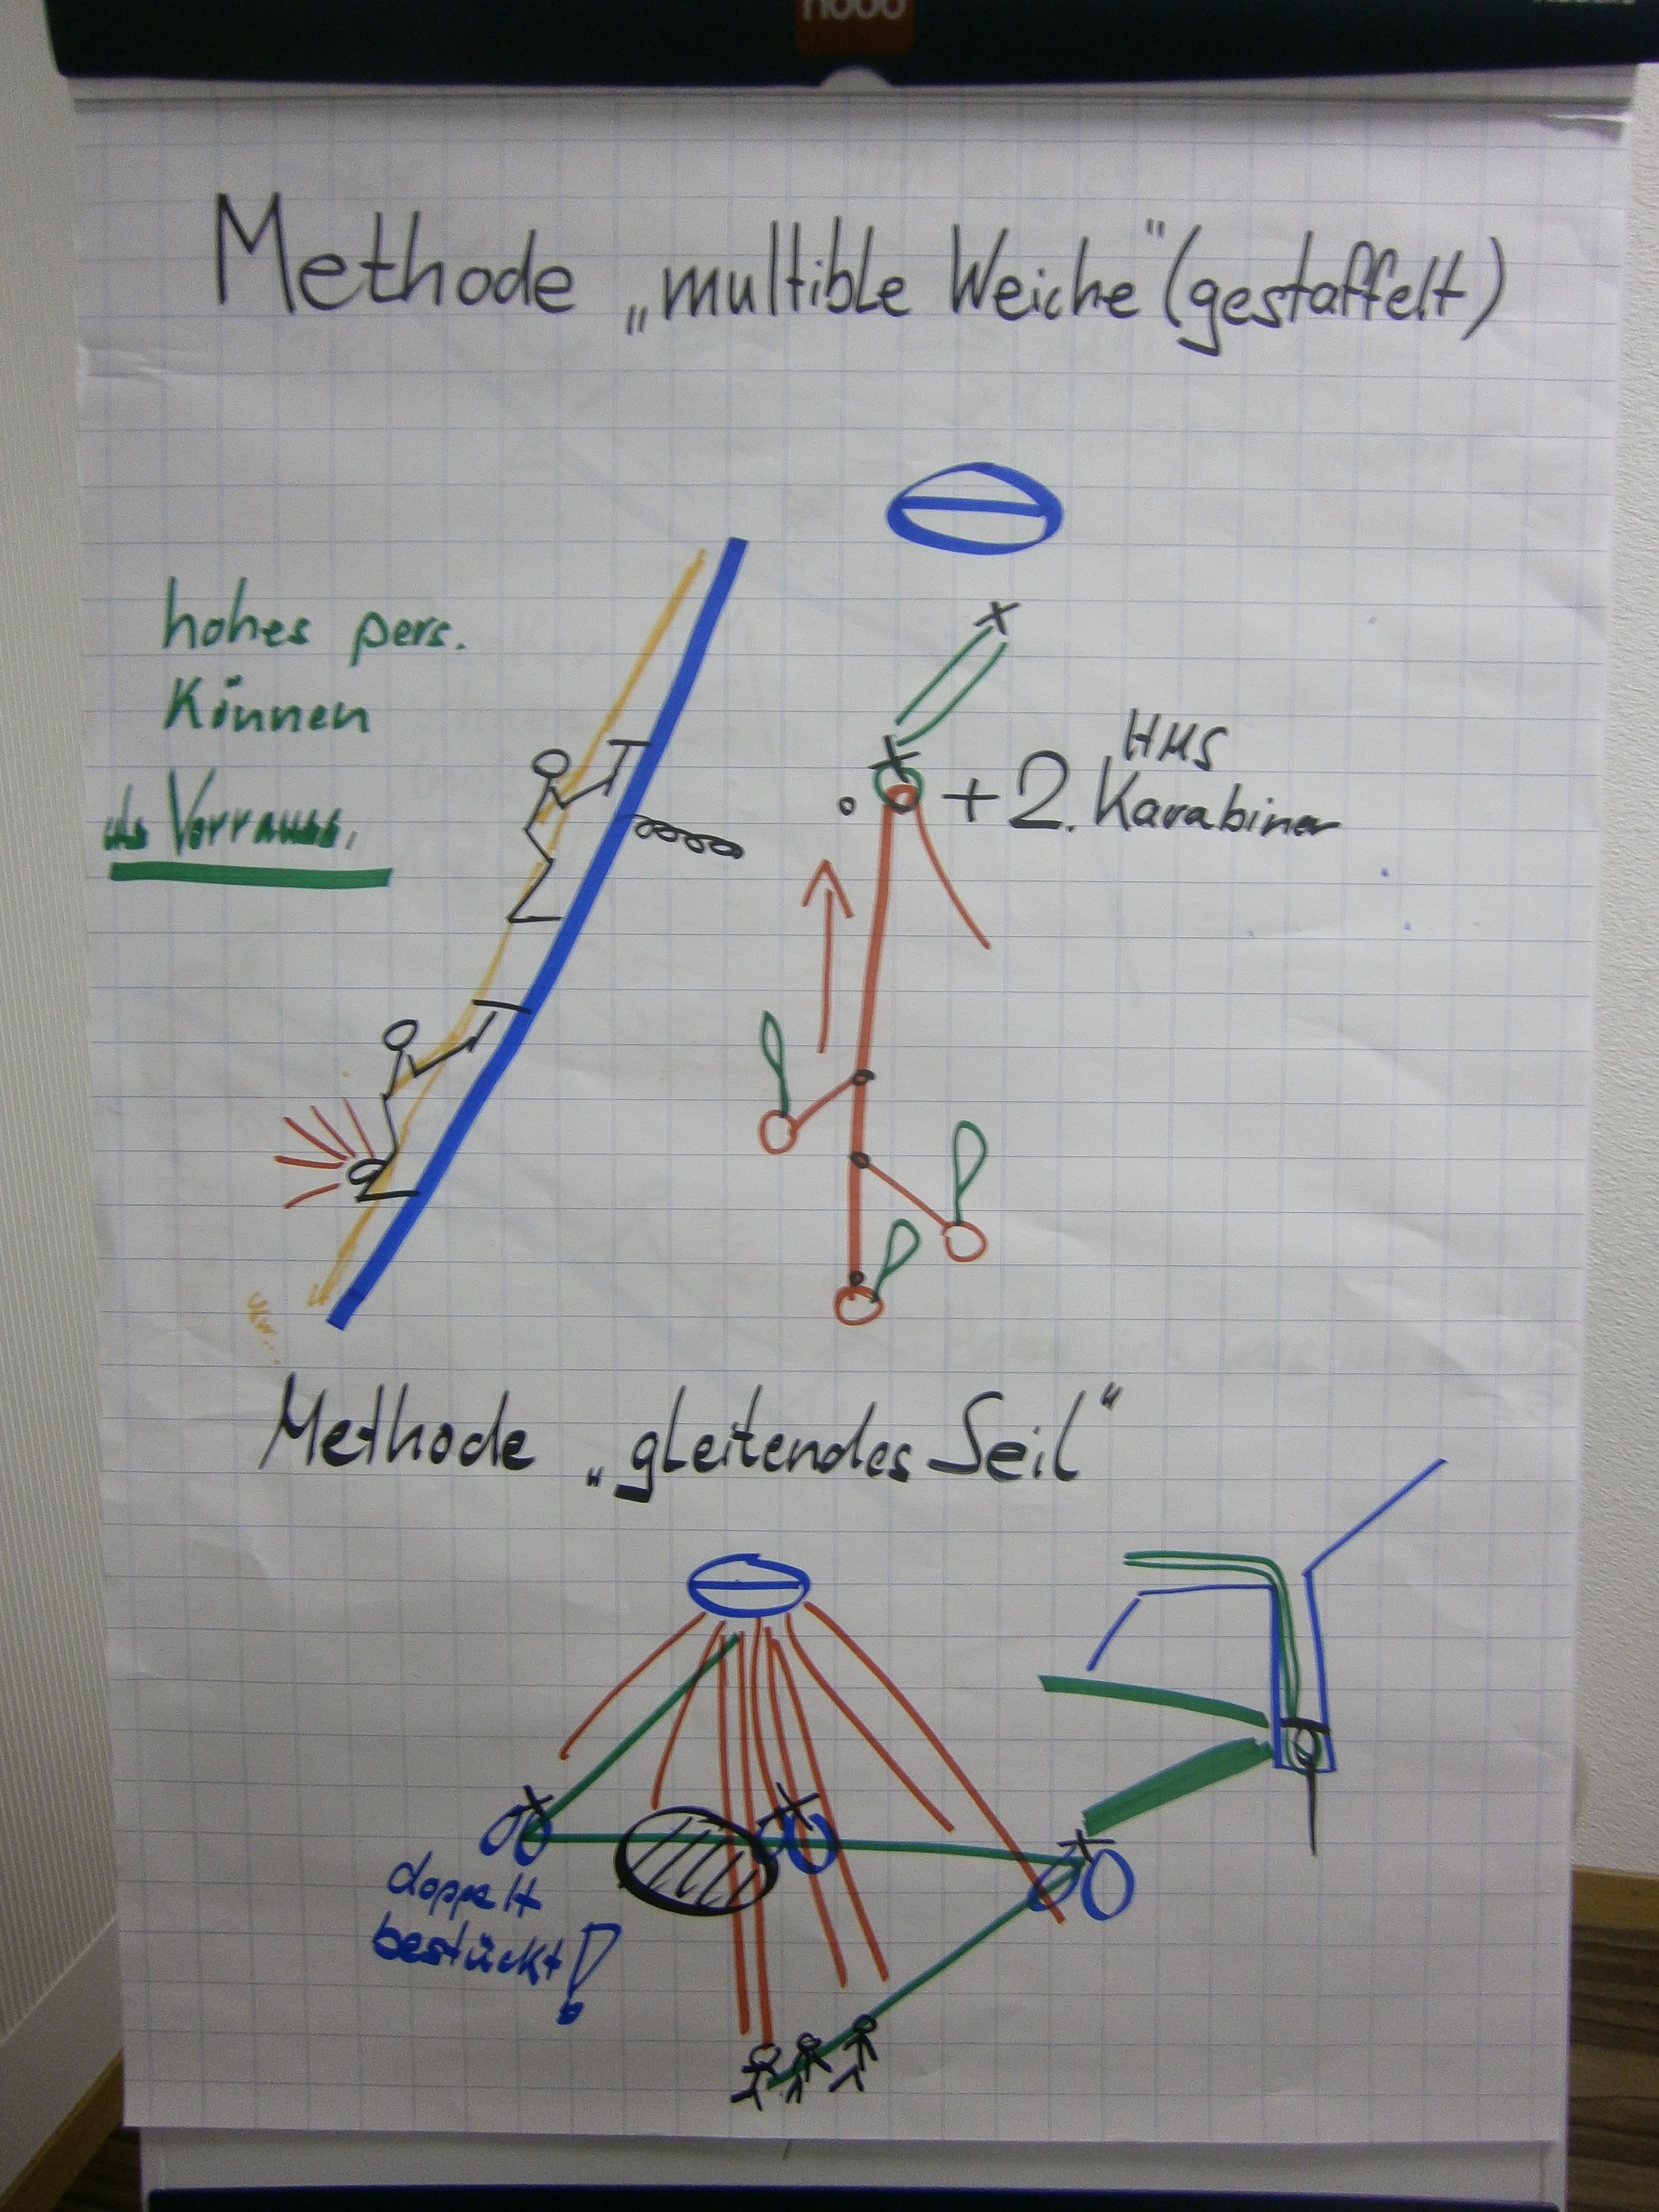 nobo
Methode „multible Weiche" (gestaffelt)
hohes pers.
Können
als Vorrauss.
HMS
+ 2. Karabiner
Methode „gleitendes Seil"
doppelt
bestückt!